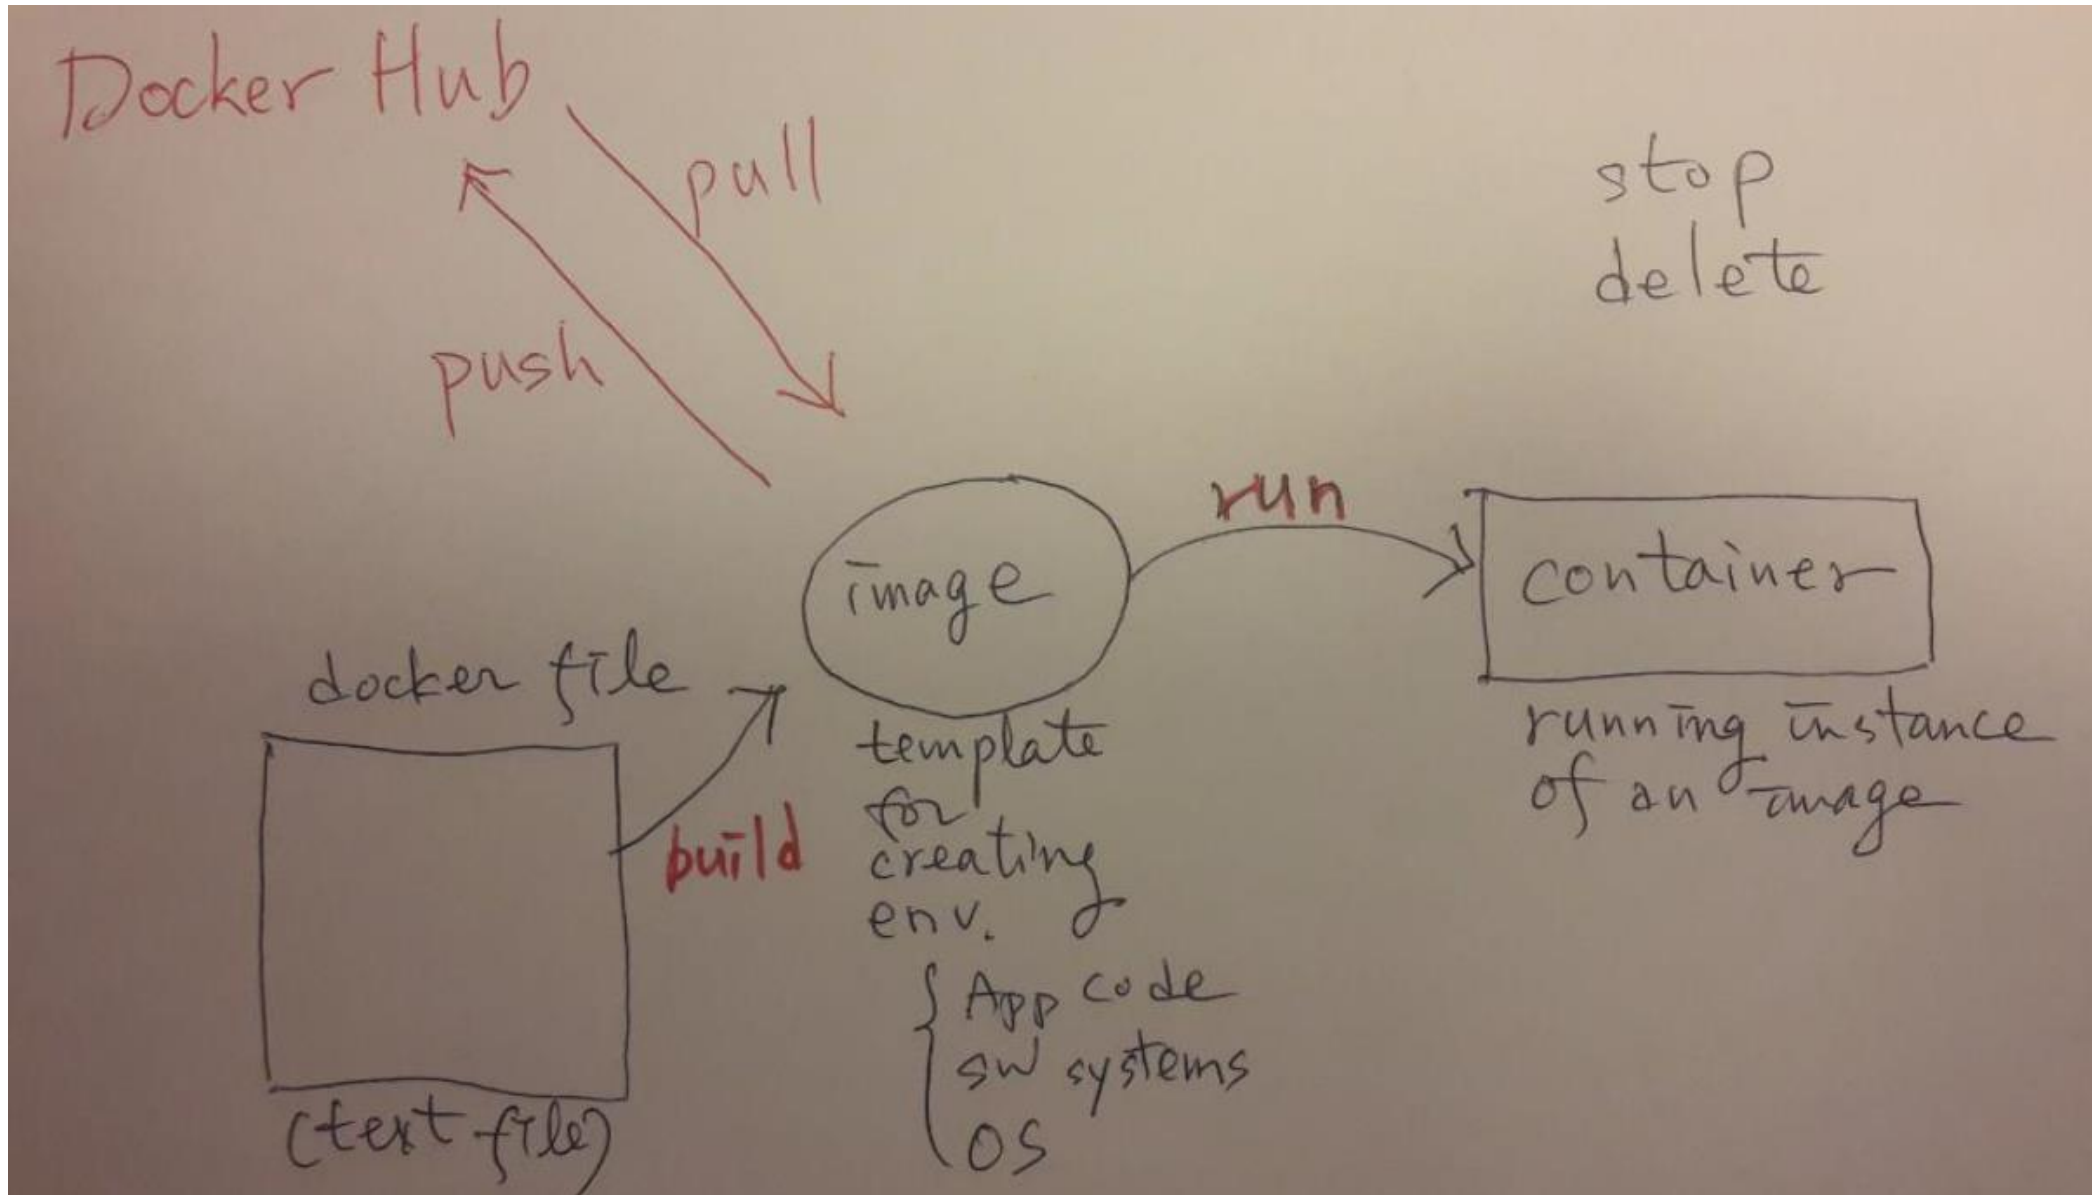 Docker Hub
pull
push
stop
delete
image
run
container
docker file
build
(text file)
template
for
creating
env.
App code
SW systems
OS
running instance
of an image